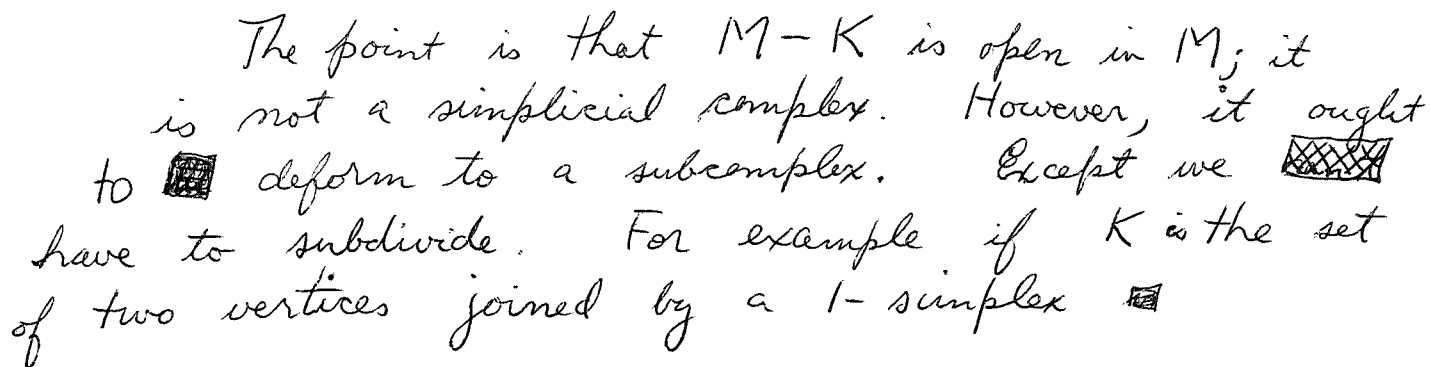 The point is that M - K is open in M; it
is not a simplicial complex. However, it ought
to deform to a subcomplex. Except we
have to subdivide. For example if K is the set
of two vertices joined by a 1-simplex